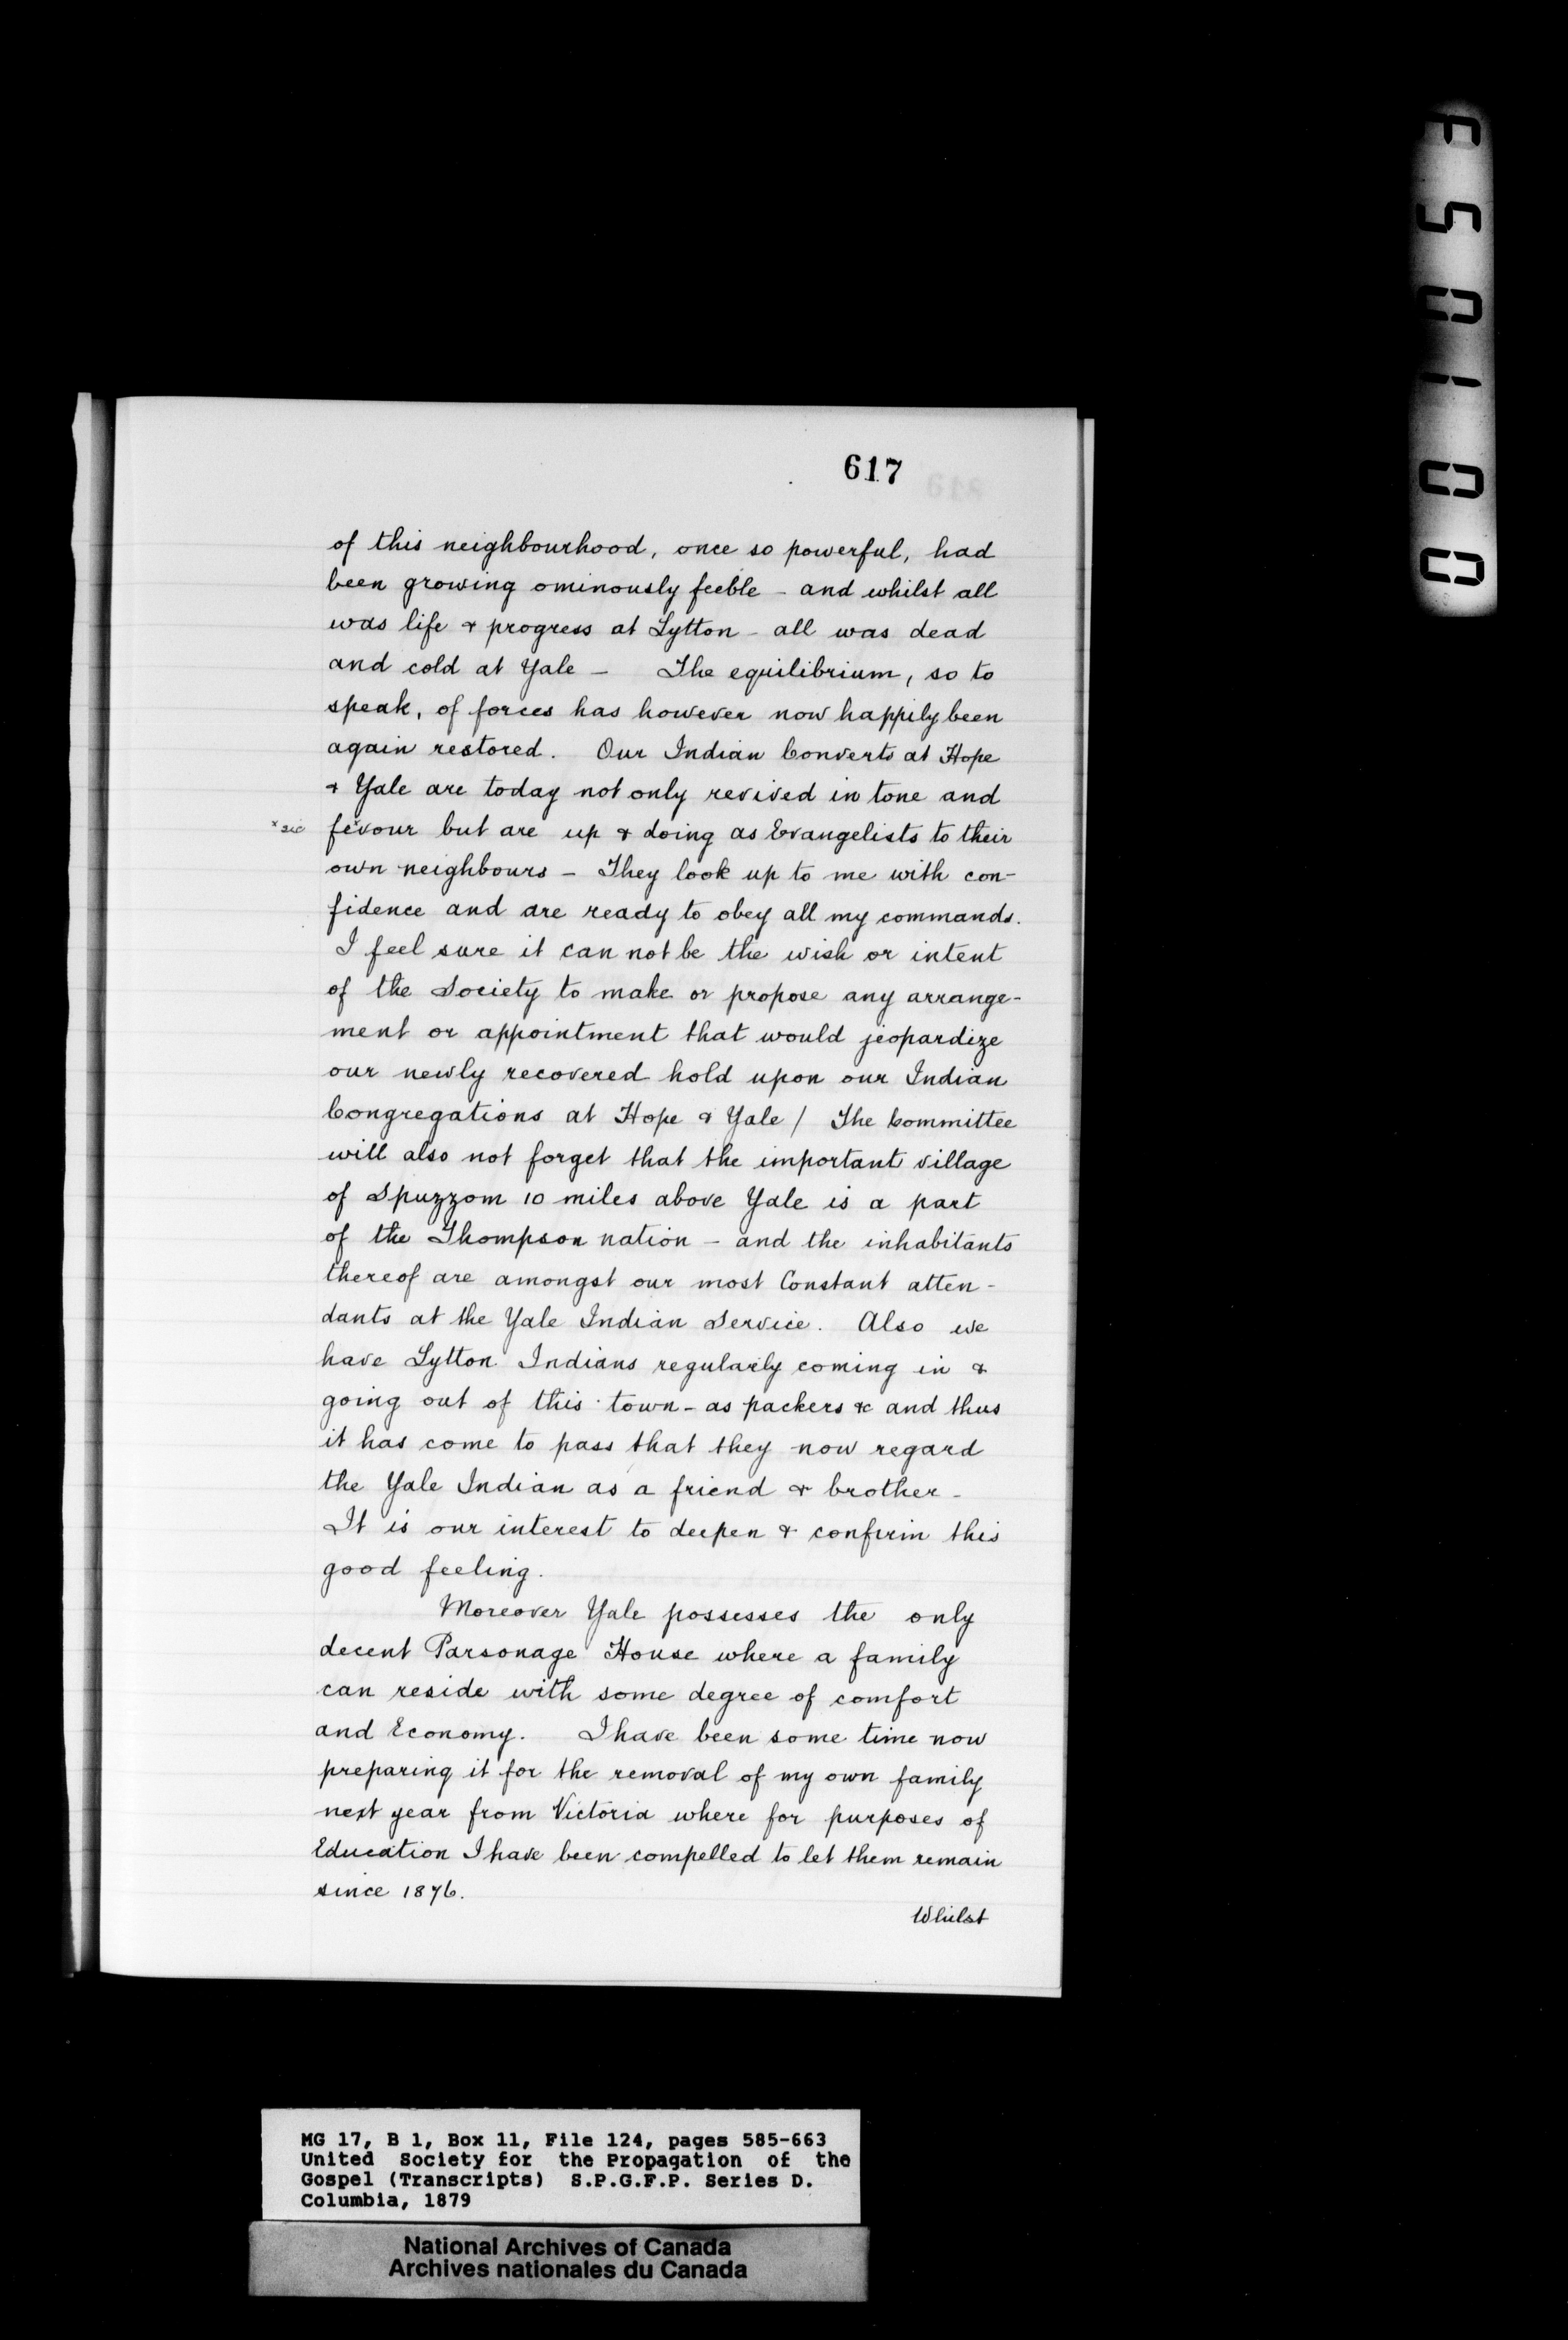 617
of this neighbourhood, once so powerful, had
been growing ominously feeble - and whilst all
was life & progress at Lytton - all was dead
and cold at Yale - The equilibrium, so to
speak, of forces has however now happily been
again restored. Our Indian Converts at Hope
& Yale are today not only revived in tone and
x sic fexvour but are up & doing as Evangelists to their
own neighbours - They look up to me with con-
fidence and are ready to obey all my commands.
I feel sure it can not be the wish or intent
of the Society to make or propose any arrange-
ment or appointment that would jeopardize
our newly recovered hold upon our Indian
Congregations at Hope & Yale / The Committee
will also not forget that the important village
of Spuzzom 10 miles above Yale is a part
of the Thompson nation - and the inhabitants
thereof are amongst our most Constant atten-
dants at the Yale Indian Service. Also we
have Lytton Indians regularly coming in &
going out of this town - as packers &c and thus
it has come to pass that they now regard
the Yale Indian as a friend & brother -
It is our interest to deepen & confirm this
good feeling.
Moreover Yale possesses the only
decent Parsonage House where a family
can reside with some degree of comfort
and Economy. I have been some time now
preparing it for the removal of my own family
next year from Victoria where for purposes of
Education I have been compelled to let them remain
since 1876.
Whilst
MG 17, B 1, Box 11, File 124, pages 585-663
United Society for the Propagation of the
Gospel (Transcripts) S.P.G.F.P. Series D.
Columbia, 1879
National Archives of Canada
Archives nationales du Canada